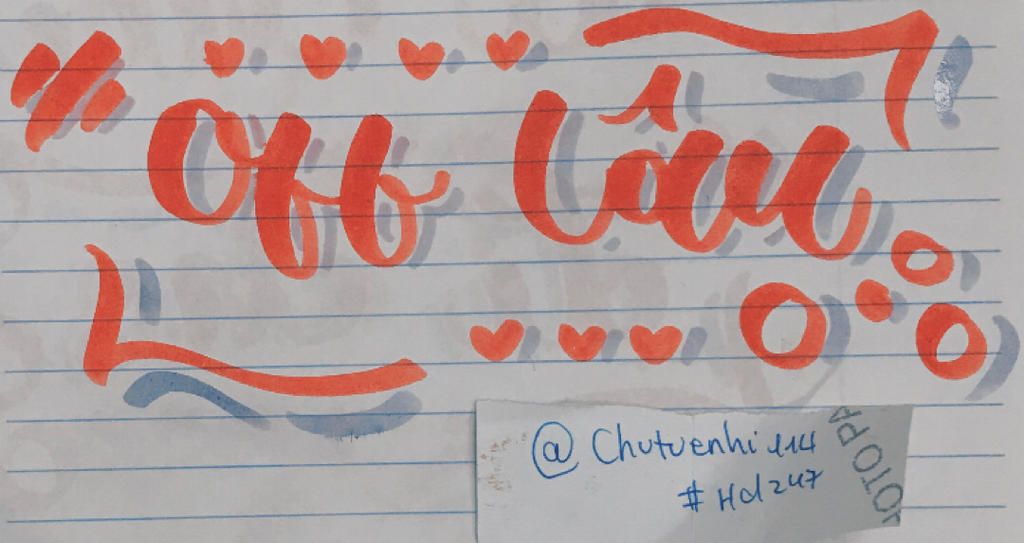 Off lâu
@Chutuenhi114
#Hd247
JOTO PA